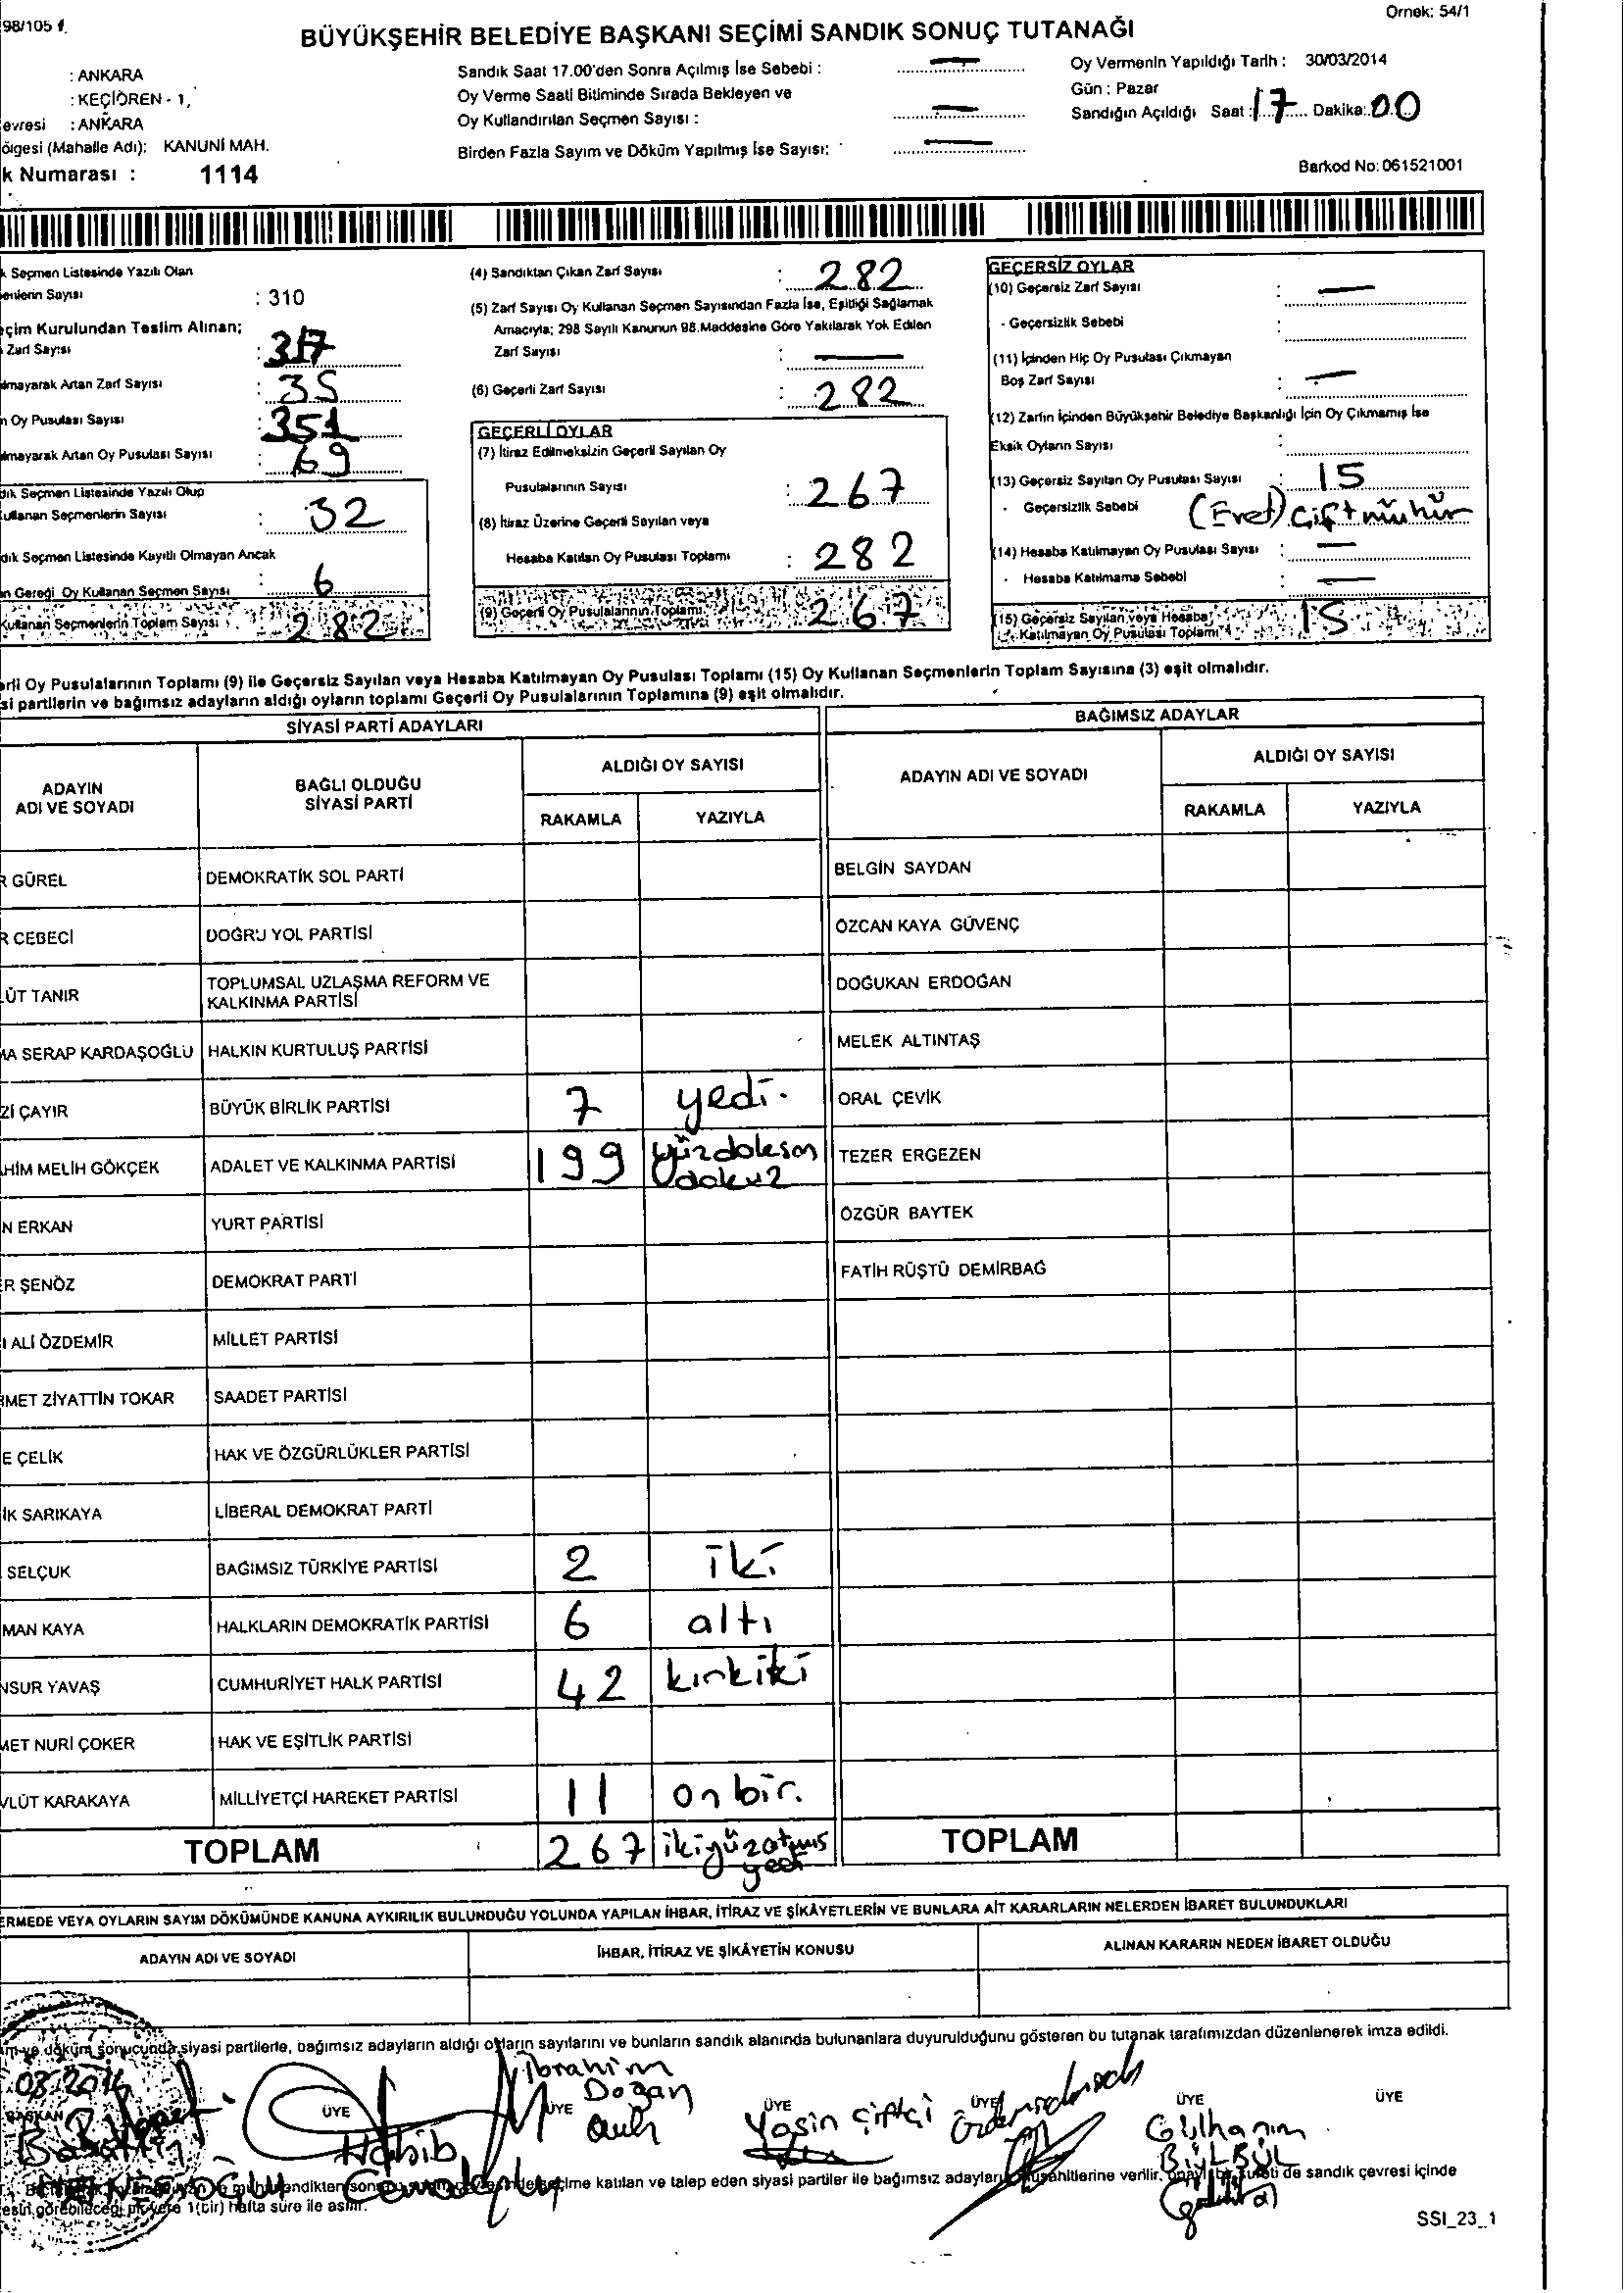 98/105
Örnek: 54/1
BÜYÜKŞEHİR BELEDİYE BAŞKANI SEÇİMİ SANDIK SONUÇ TUTANAĞI
: ANKARA
: KEÇİÖREN - 1,
evresi : ANKARA
ölgesi (Mahalle Adı): KANUNİ MAH.
k Numarası : 1114
Sandık Saat 17.00'den Sonra Açılmış İse Sebebi : —
Oy Verme Saati Bitiminde Sırada Bekleyen ve
Oy Kullandırılan Seçmen Sayısı : —
Birden Fazla Sayım ve Döküm Yapılmış İse Sayısı: —
Oy Vermenin Yapıldığı Tarih : 30/03/2014
Gün : Pazar
Sandığın Açıldığı Saat : 17 Dakika: 00
Barkod No: 061521001
k Seçmen Listesinde Yazılı Olan
enlerin Sayısı : 310
eçim Kurulundan Teslim Alınan;
Zarf Sayısı : 317
lmayarak Artan Zarf Sayısı : 35
n Oy Pusulası Sayısı : 351
lmayarak Artan Oy Pusulası Sayısı : 69
dık Seçmen Listesinde Yazılı Olup
ullanan Seçmenlerin Sayısı : 32
dık Seçmen Listesinde Kayıtlı Olmayan Ancak
n Gereği Oy Kullanan Seçmen Sayısı : 6
Kullanan Seçmenlerin Toplam Sayısı : 282
(4) Sandıktan Çıkan Zarf Sayısı : 282
(5) Zarf Sayısı Oy Kullanan Seçmen Sayısından Fazla İse, Eşitliği Sağlamak
Amacıyla; 298 Sayılı Kanunun 98.Maddesine Göre Yakılarak Yok Edilen
Zarf Sayısı : —
(6) Geçerli Zarf Sayısı : 282
GEÇERLİ OYLAR
(7) İtiraz Edilmeksizin Geçerli Sayılan Oy
Pusulalarının Sayısı : 267
(8) İtiraz Üzerine Geçerli Sayılan veya
Hesaba Katılan Oy Pusulası Toplamı : 282
(9) Geçerli Oy Pusulalarının Toplamı 267
GEÇERSİZ OYLAR
(10) Geçersiz Zarf Sayısı : —
- Geçersizlik Sebebi :
(11) İçinden Hiç Oy Pusulası Çıkmayan
Boş Zarf Sayısı : —
(12) Zarfın İçinden Büyükşehir Belediye Başkanlığı İçin Oy Çıkmamış İse
Eksik Oyların Sayısı :
(13) Geçersiz Sayılan Oy Pusulası Sayısı : 15
- Geçersizlik Sebebi (Evet) Çift mühür
(14) Hesaba Katılmayan Oy Pusulası Sayısı : —
- Hesaba Katılmama Sebebi : —
(15) Geçersiz Sayılan veya Hesaba
Katılmayan Oy Pusulası Toplamı 15
erli Oy Pusulalarının Toplamı (9) ile Geçersiz Sayılan veya Hesaba Katılmayan Oy Pusulası Toplamı (15) Oy Kullanan Seçmenlerin Toplam Sayısına (3) eşit olmalıdır.
si partilerin ve bağımsız adayların aldığı oyların toplamı Geçerli Oy Pusulalarının Toplamına (9) eşit olmalıdır.
SİYASİ PARTİ ADAYLARI
ADAYIN
ADI VE SOYADI
BAĞLI OLDUĞU
SİYASİ PARTİ
ALDIĞI OY SAYISI
RAKAMLA YAZIYLA
R GÜREL DEMOKRATİK SOL PARTİ
R CEBECİ DOĞRU YOL PARTİSİ
LÜT TANIR TOPLUMSAL UZLAŞMA REFORM VE
KALKINMA PARTİSİ
MA SERAP KARDAŞOĞLU HALKIN KURTULUŞ PARTİSİ
Zİ ÇAYIR BÜYÜK BİRLİK PARTİSİ 7 yedi.
HİM MELİH GÖKÇEK ADALET VE KALKINMA PARTİSİ 199 yüzdoksan
dokuz
N ERKAN YURT PARTİSİ
ER ŞENÖZ DEMOKRAT PARTİ
I ALİ ÖZDEMİR MİLLET PARTİSİ
HMET ZİYATTİN TOKAR SAADET PARTİSİ
E ÇELİK HAK VE ÖZGÜRLÜKLER PARTİSİ
İK SARIKAYA LİBERAL DEMOKRAT PARTİ
SELÇUK BAĞIMSIZ TÜRKİYE PARTİSİ 2 iki
MAN KAYA HALKLARIN DEMOKRATİK PARTİSİ 6 altı
NSUR YAVAŞ CUMHURİYET HALK PARTİSİ 42 kırkiki
MET NURİ ÇOKER HAK VE EŞİTLİK PARTİSİ
VLÜT KARAKAYA MİLLİYETÇİ HAREKET PARTİSİ 11 onbir.
TOPLAM 267 ikiyüzatmış
yedi
BAĞIMSIZ ADAYLAR
ADAYIN ADI VE SOYADI
ALDIĞI OY SAYISI
RAKAMLA YAZIYLA
BELGİN SAYDAN
ÖZCAN KAYA GÜVENÇ
DOĞUKAN ERDOĞAN
MELEK ALTINTAŞ
ORAL ÇEVİK
TEZER ERGEZEN
ÖZGÜR BAYTEK
FATİH RÜŞTÜ DEMİRBAĞ
TOPLAM
ERMEDE VEYA OYLARIN SAYIM DÖKÜMÜNDE KANUNA AYKIRILIK BULUNDUĞU YOLUNDA YAPILAN İHBAR, İTİRAZ VE ŞİKÂYETLERİN VE BUNLARA AİT KARARLARIN NELERDEN İBARET BULUNDUKLARI
ADAYIN ADI VE SOYADI İHBAR, İTİRAZ VE ŞİKÂYETİN KONUSU ALINAN KARARIN NEDEN İBARET OLDUĞU
ım ve döküm sonucunda siyasi partilerle, bağımsız adayların aldığı oyların sayılarını ve bunların sandık alanında bulunanlara duyurulduğunu gösteren bu tutanak tarafımızdan düzenlenerek imza edildi.
03.2014
BAŞKAN
ÜYE
Habib
İbrahim
Doğan
ÜYE
ÜYE
Yasin Çiftçi
ÜYE
ÜYE
Gülhanım
BÜLBÜL
ÜYE
seçime katılan ve talep eden siyasi partiler ile bağımsız adayların müşahitlerine verilir. onaylı bir sureti de sandık çevresi içinde
1(bir) hafta süre ile asılır.
SSI_23_1